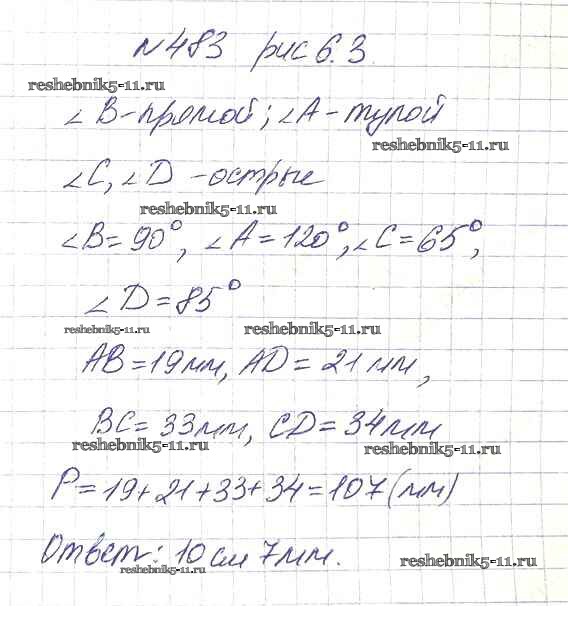 №483 рис 6.3
reshebnik5-11.ru
∠B-прямой; ∠A-тупой
reshebnik5-11.ru
∠C, ∠D -острые
reshebnik5-11.ru
∠B=90°, ∠A=120°, ∠C=65°,
∠D=85°
reshebnik5-11.ru reshebnik5-11.ru
AB=19мм, AD=21мм,
BC=33мм, CD=34мм
reshebnik5-11.ru reshebnik5-11.ru
P=19+21+33+34=107(мм)
Ответ: 10см 7мм.
reshebnik5-11.ru reshebnik5-11.ru